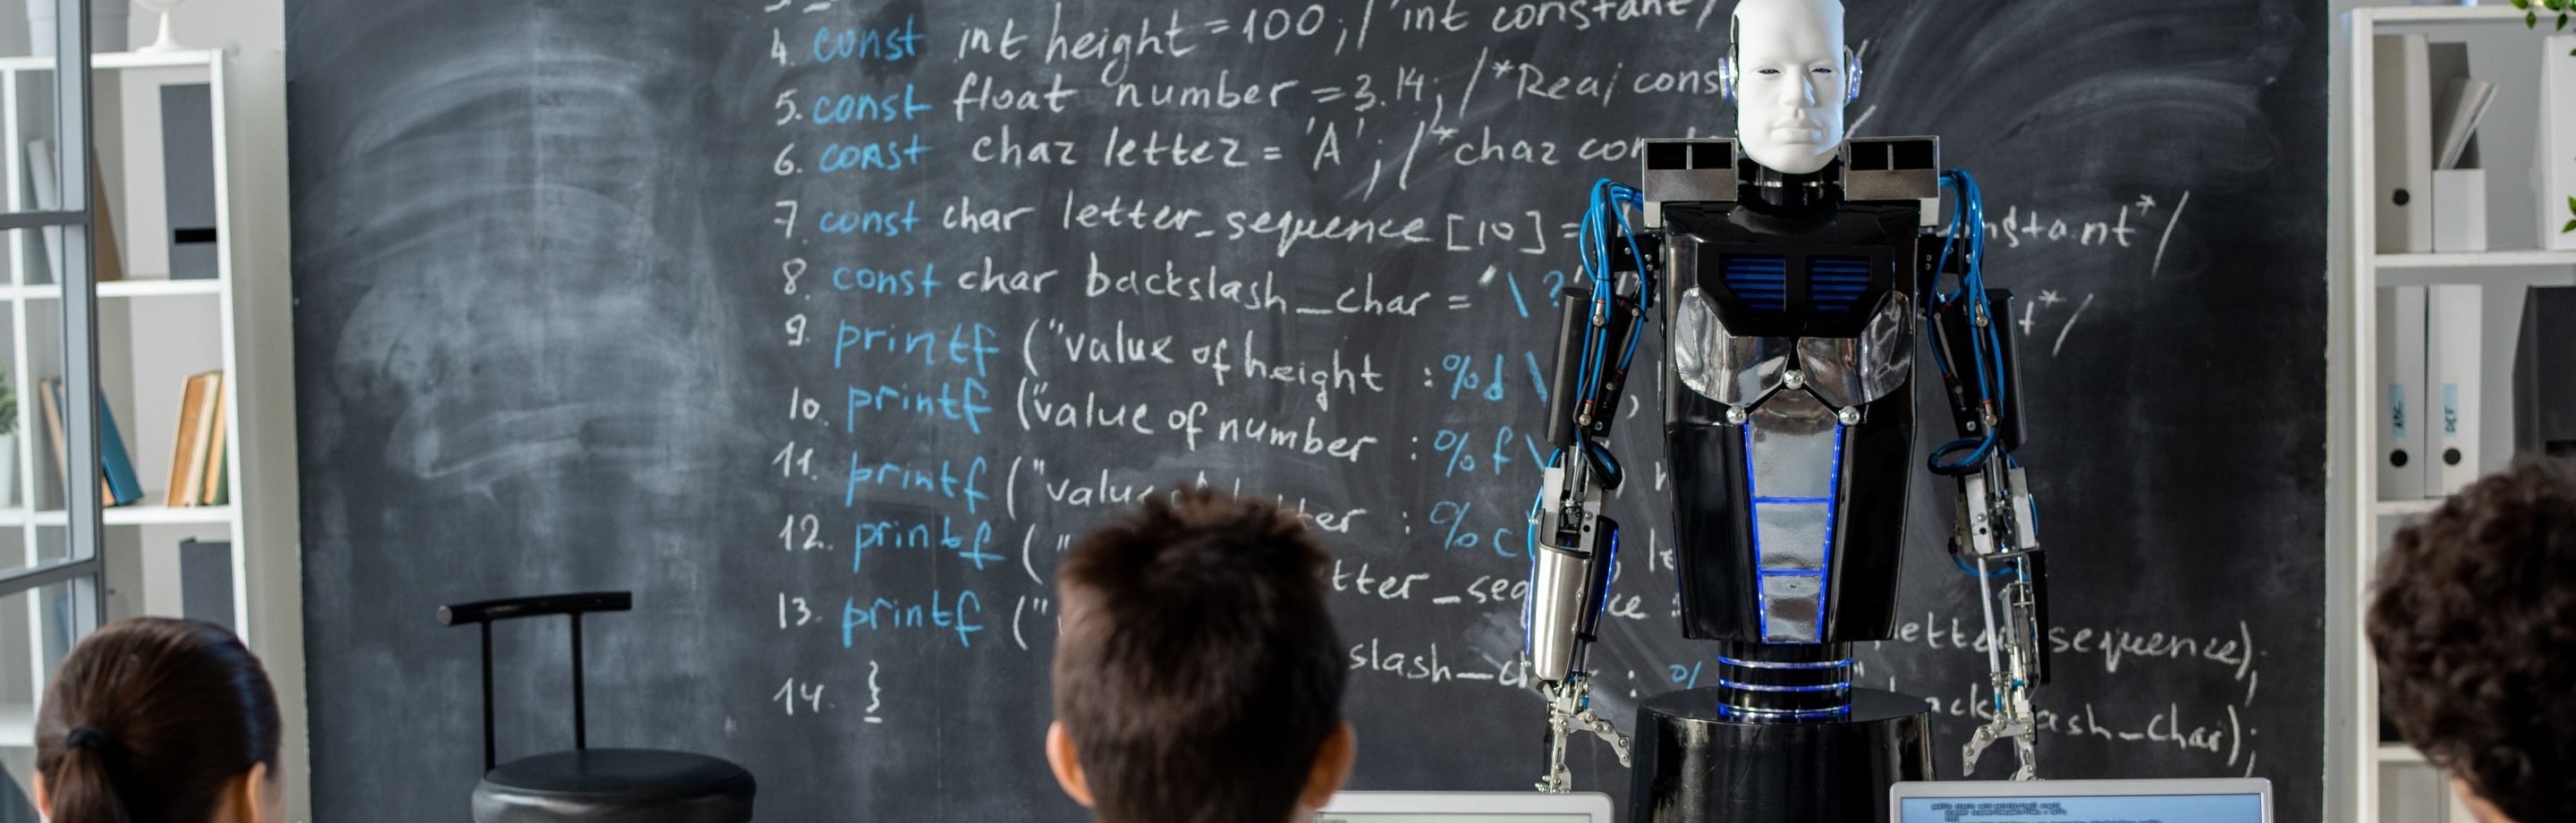 4. const int height = 100; /*int constant/
5. const float number = 3.14; /*Real cons
6. const char letter = 'A'; /*char con /
7. const char letter_sequence [10] = nstant*/
8. const char backslash_char = '\?' t*/
9. printf ("value of height : %d \ ,
10. printf ("value of number : %f \ ,
11. printf ("value of tter : %c le
12. printf (" tter_seq ce : letter sequence);
13. printf (" slash_c : % " ack ash_char);
14. }
ABC
DEF